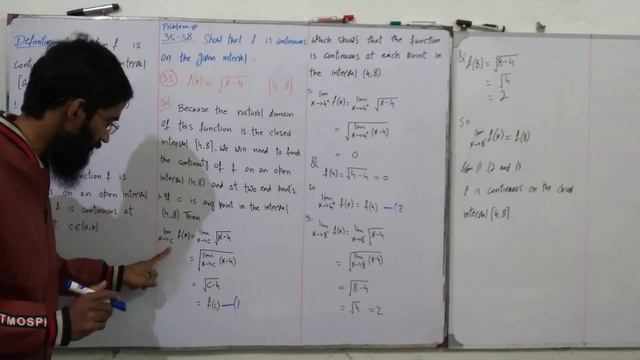 Definition
f is
interval
function f is
on an open interval
f is continuous at
c∈(a,b)
Problem #
35-38 Show that f is continuous
on the given interval.
(35) f(x) = √x-4 [4,8]
Sol Because the natural domain
of this function is the closed
interval [4,8]. We will need to find
the continuity of f on an open
interval (4,8) and at two end points.
If c is any point in the interval
(4,8) Then
lim x→c f(x) = lim x→c √x-4
= √lim x→c (x-4)
= √c-4
= f(c) —(1
Which shows that the function
is continuous at each point in
the interval (4,8)
lim x→4⁺ f(x) = lim x→4⁺ √x-4
= √lim x→4⁺ (x-4)
= 0
& f(4) = √4-4 = 0
so
lim x→4⁺ f(x) = f(4) —(2
lim x→8⁻ f(x) = lim x→8⁻ √x-4
= √lim x→8⁻ (x-4)
= √8-4
= √4 = 2
& f(8) = √8-4
= √4
= 2
so
lim x→8⁻ f(x) = f(8)
f is continuous on the closed
interval [4,8]
ATMOSPH